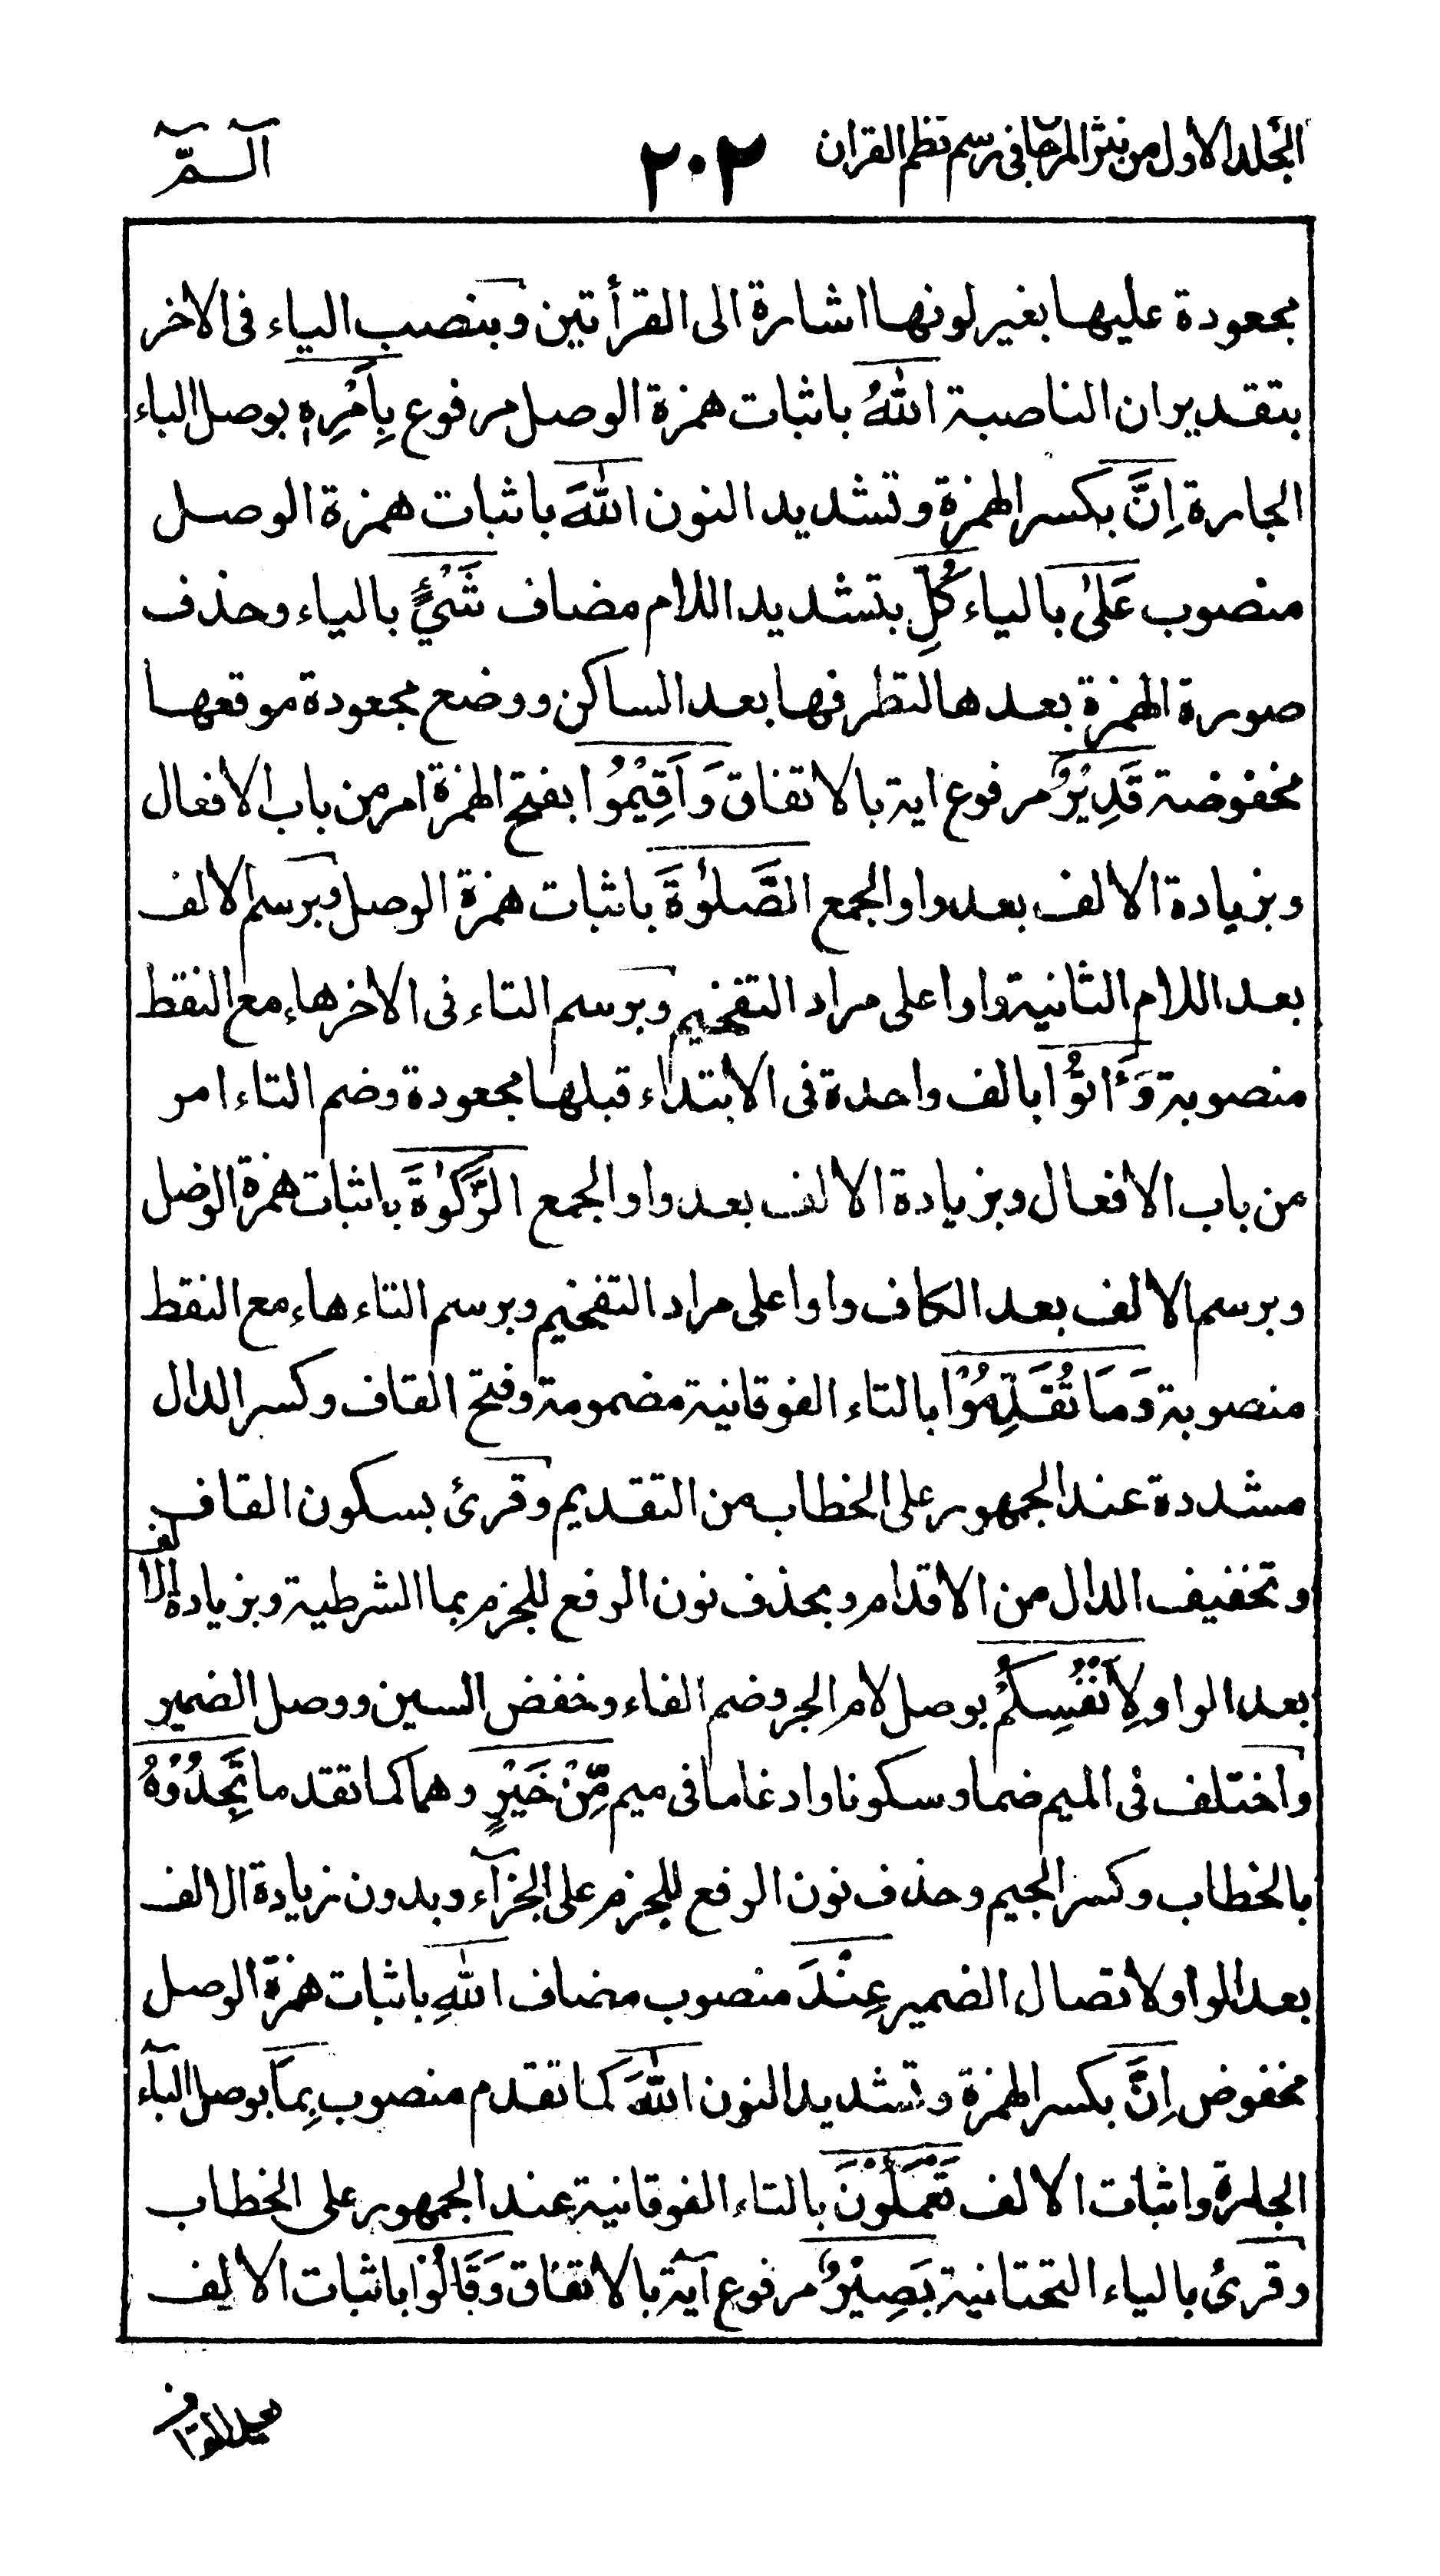 المجلد الاول من نثر المرجان في رسم نظم القران ٢٠٢ آلٓـمّٓ
مجعودة عليها بغير لونها اشارة الى القرأتين وبنصب الياء فى الاخر
بتقدير ان الناصبة اللّٰهُ باثبات همزة الوصل مرفوع بِاَمْرِهٖ بوصل الباء
الجارة اِنَّ بكسر الهمزة وتشديد النون اللّٰهَ باثبات همزة الوصل
منصوب عَلٰى بالياء كُلِّ بتشديد اللام مضاف شَيْءٍ بالياء وحذف
صورة الهمزة بعدها لتطرفها بعد الساكن ووضع مجعودة موقعها
مخفوضة قَدِيْرٌ مرفوع اية بالاتفاق وَاَقِيْمُوا بفتح الهمزة امر من باب الافعال
وبزيادة الالف بعد واو الجمع الصَّلٰوةَ باثبات همزة الوصل وبرسم الالف
بعد اللام الثانية واوا على مراد التفخيم وبرسم التاء فى الاخر هاء مع النقط
منصوبة وَءَاتُوا بالف واحدة فى الابتداء قبلها مجعودة وضم التاء امر
من باب الافعال وبزيادة الالف بعد واو الجمع الزَّكٰوةَ باثبات همزة الوصل
وبرسم الالف بعد الكاف واوا على مراد التفخيم وبرسم التاء هاء مع النقط
منصوبة وَمَا تُقَدِّمُوْا بالتاء الفوقانية مضمومة وفتح القاف وكسر الدال
مشددة عند الجمهور على الخطاب من التقديم وقرئ بسكون القاف
وتخفيف الدال من الاقدام وبحذف نون الرفع للجزم بما الشرطية وبزيادة الالف
بعد الواو لِاَنْفُسِكُمْ بوصل لام الجر وضم الفاء وخفض السين ووصل الضمير
واختلف فى الميم ضما وسكونا وادغاما فى ميم مِّنْ خَيْرٍ وهما كما تقدما تَجِدُوْهُ
بالخطاب وكسر الجيم وحذف نون الرفع للجزم على الجزآء وبدون زيادة الالف
بعد الواو لاتصال الضمير عِنْدَ منصوب مضاف اللّٰهِ باثبات همزة الوصل
مخفوض اِنَّ بكسر الهمزة وتشديد النون اللّٰهَ كما تقدم منصوب بِمَا بوصل البآء
الجارة واثبات الالف تَعْمَلُوْنَ بالتاء الفوقانية عند الجمهور على الخطاب
وقرئ بالياء التحتانية بَصِيْرٌ مرفوع آية بالاتفاق وَقَالُوْا باثبات الالف
بعد القاف